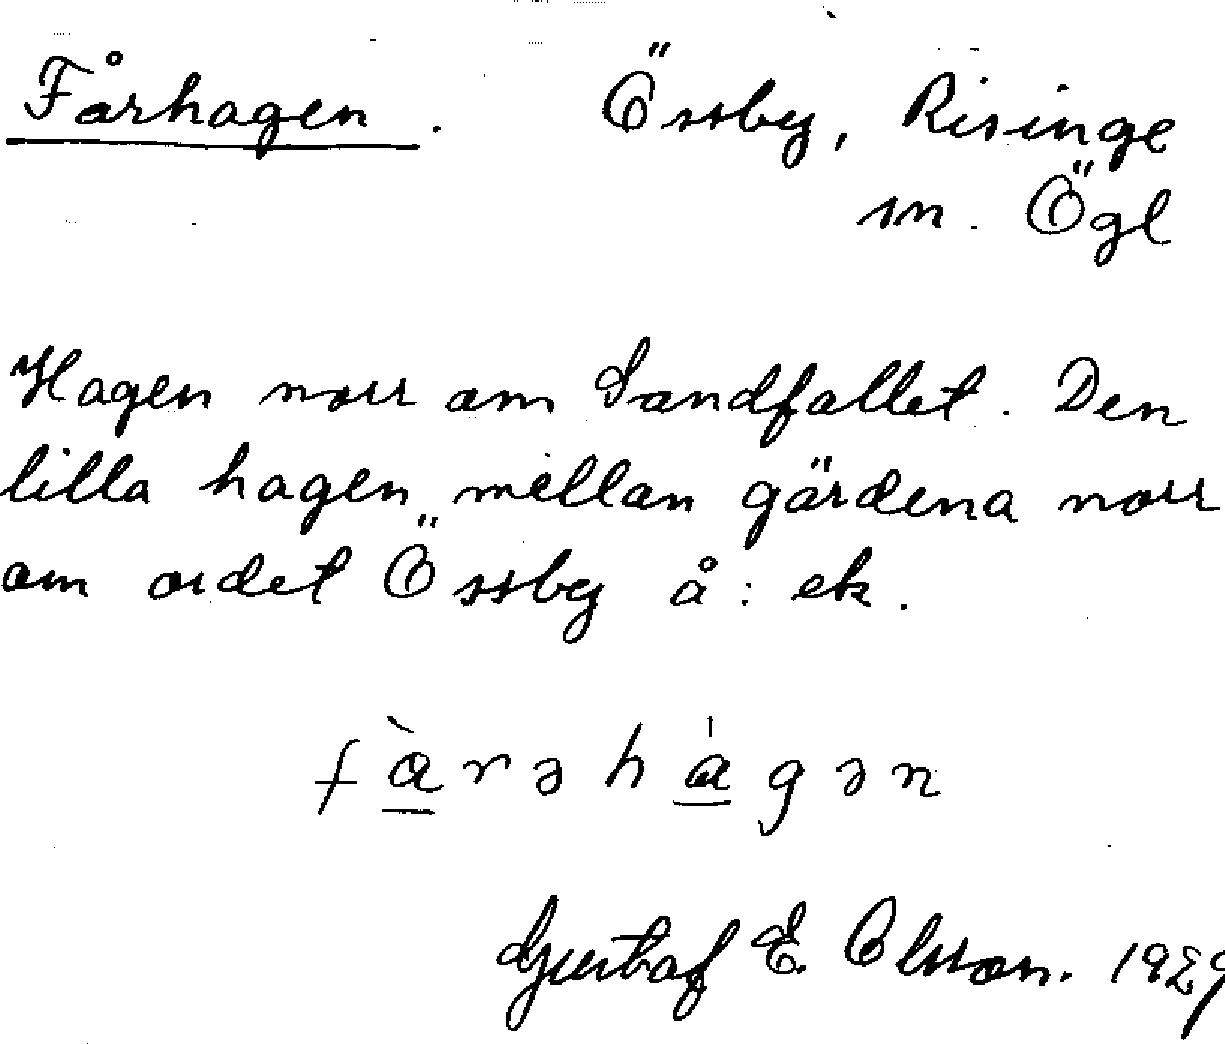 Fårhagen. Össby, Risinge
sn. Ögl
Hagen norr om Sandfallet. Den
lilla hagen mellan gärdena norr
om ordet Össby å: ek.
fàrəhágən
Gustaf E. Olsson. 1929